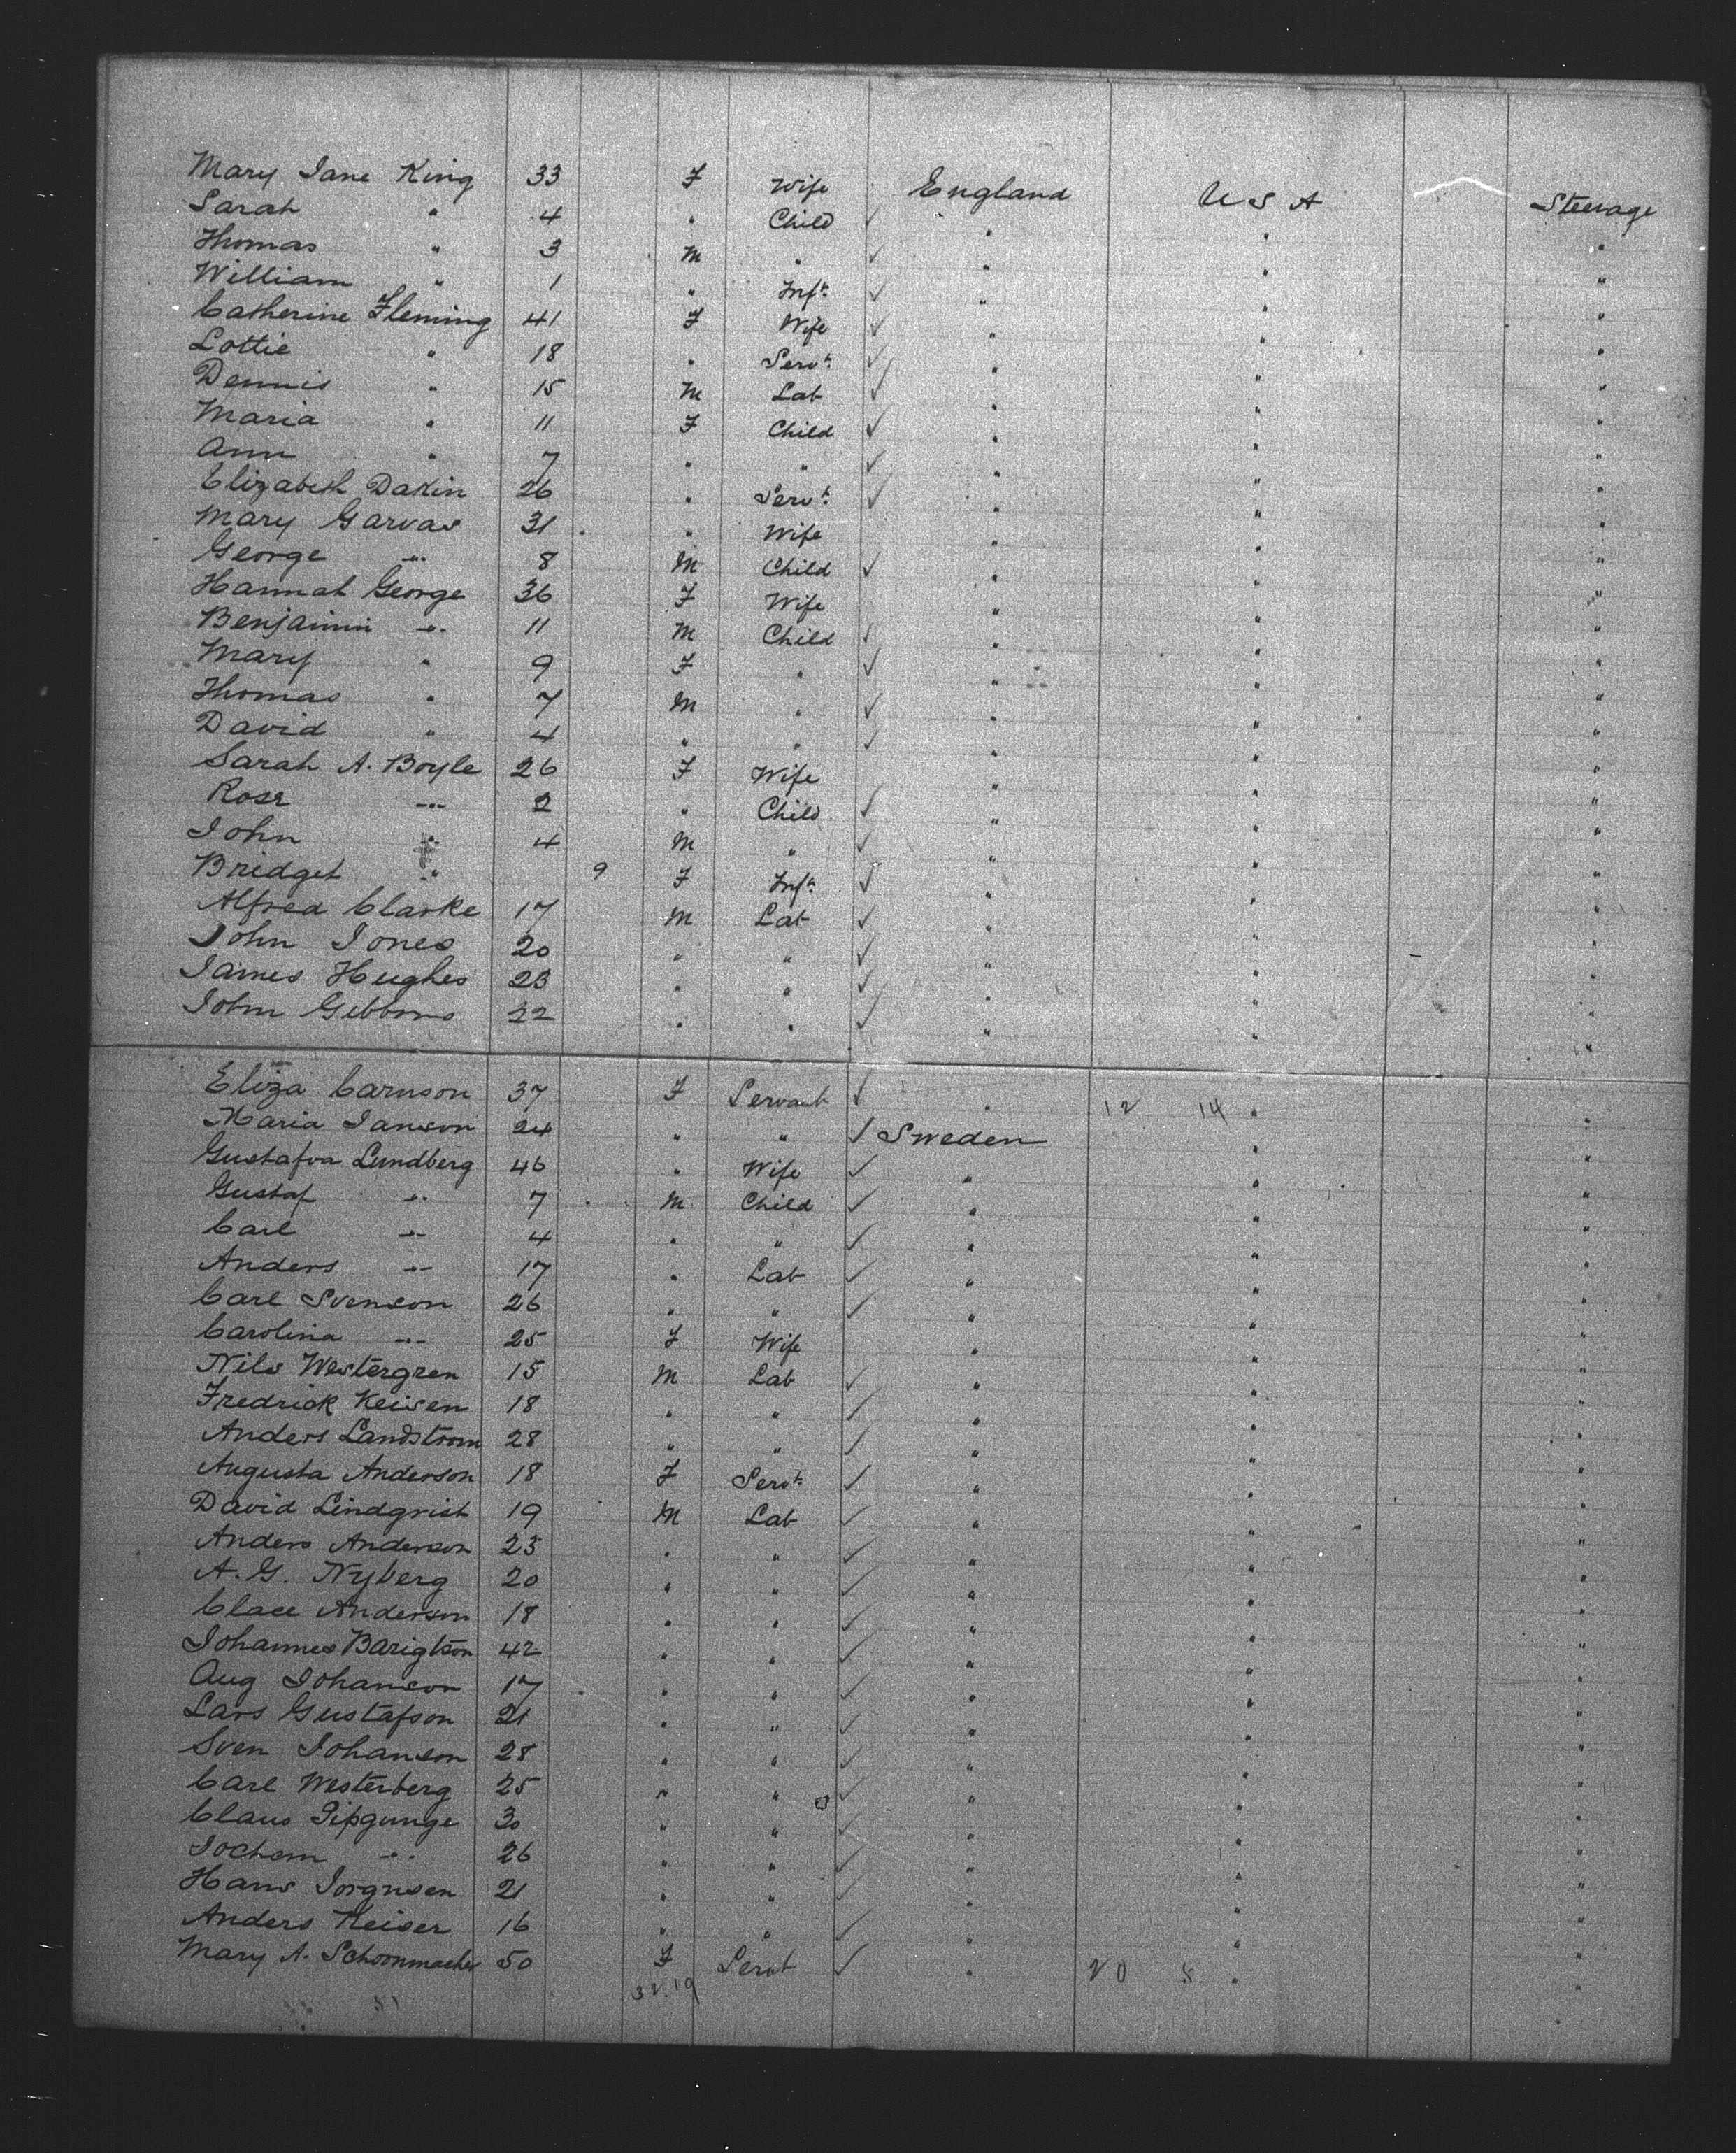 Mary Jane King 33 F Wife England U S A Steerage
Sarah " 4 " Child ✓ " " "
Thomas " 3 M " ✓ " " "
William " 1 " Inft ✓ " " "
Catherine Fleming 41 F Wife ✓ " " "
Lottie " 18 " Servt ✓ " " "
Dennis " 15 M Lab ✓ " " "
Maria " 11 F Child ✓ " " "
Ann " 7 " " ✓ " " "
Elizabeth Dakin 26 " Servt ✓ " " "
Mary Garvas 31 " Wife " " "
George " 8 M Child ✓ " " "
Hannah George 36 F Wife " " "
Benjamin " 11 M Child ✓ " " "
Mary " 9 F " ✓ " " "
Thomas " 7 M " ✓ " " "
David " 4 " " ✓ " " "
Sarah A. Boyle 26 F Wife " " "
Rose " 2 " Child ✓ " " "
John " 4 M " ✓ " " "
Bridget " 9 F Inft ✓ " " "
Alfred Clarke 17 M Lab ✓ " " "
John Jones 20 " " ✓ " " "
James Hughes 23 " " ✓ " " "
John Gibbons 22 " " ✓ " " "
Eliza Carnson 37 F Servant ✓ " 12 14 " "
Maria Janson 24 " " ✓ Sweden " "
Gustafva Lundberg 46 " Wife ✓ " " "
Gustaf " 7 M Child ✓ " " "
Carl " 4 " " ✓ " " "
Anders " 17 " Lab ✓ " " "
Carl Svenson 26 " " ✓ " " "
Carolina " 25 F Wife " " "
Nils Westergren 15 M Lab ✓ " " "
Fredrick Keisen 18 " " ✓ " " "
Anders Landstrom 28 " " ✓ " " "
Augusta Anderson 18 F Servt ✓ " " "
David Lindqvist 19 M Lab ✓ " " "
Anders Anderson 23 " " ✓ " " "
A. G. Nyberg 20 " " ✓ " " "
Clace Anderson 18 " " ✓ " " "
Johannes Barigtson 42 " " ✓ " " "
Aug Johanson 17 " " ✓ " " "
Lars Gustafson 21 " " ✓ " " "
Sven Johanson 28 " " ✓ " " "
Carl Westerberg 25 " " ✓ " " "
Claus Pipgunge 30 " " ✓ " " "
Jochem " 26 " " ✓ " " "
Hans Jorgnsen 21 " " ✓ " " "
Anders Keiser 16 " " ✓ " " "
Mary A. Schoonmacher 50 F Servt ✓ " 20 8 " "
32.19